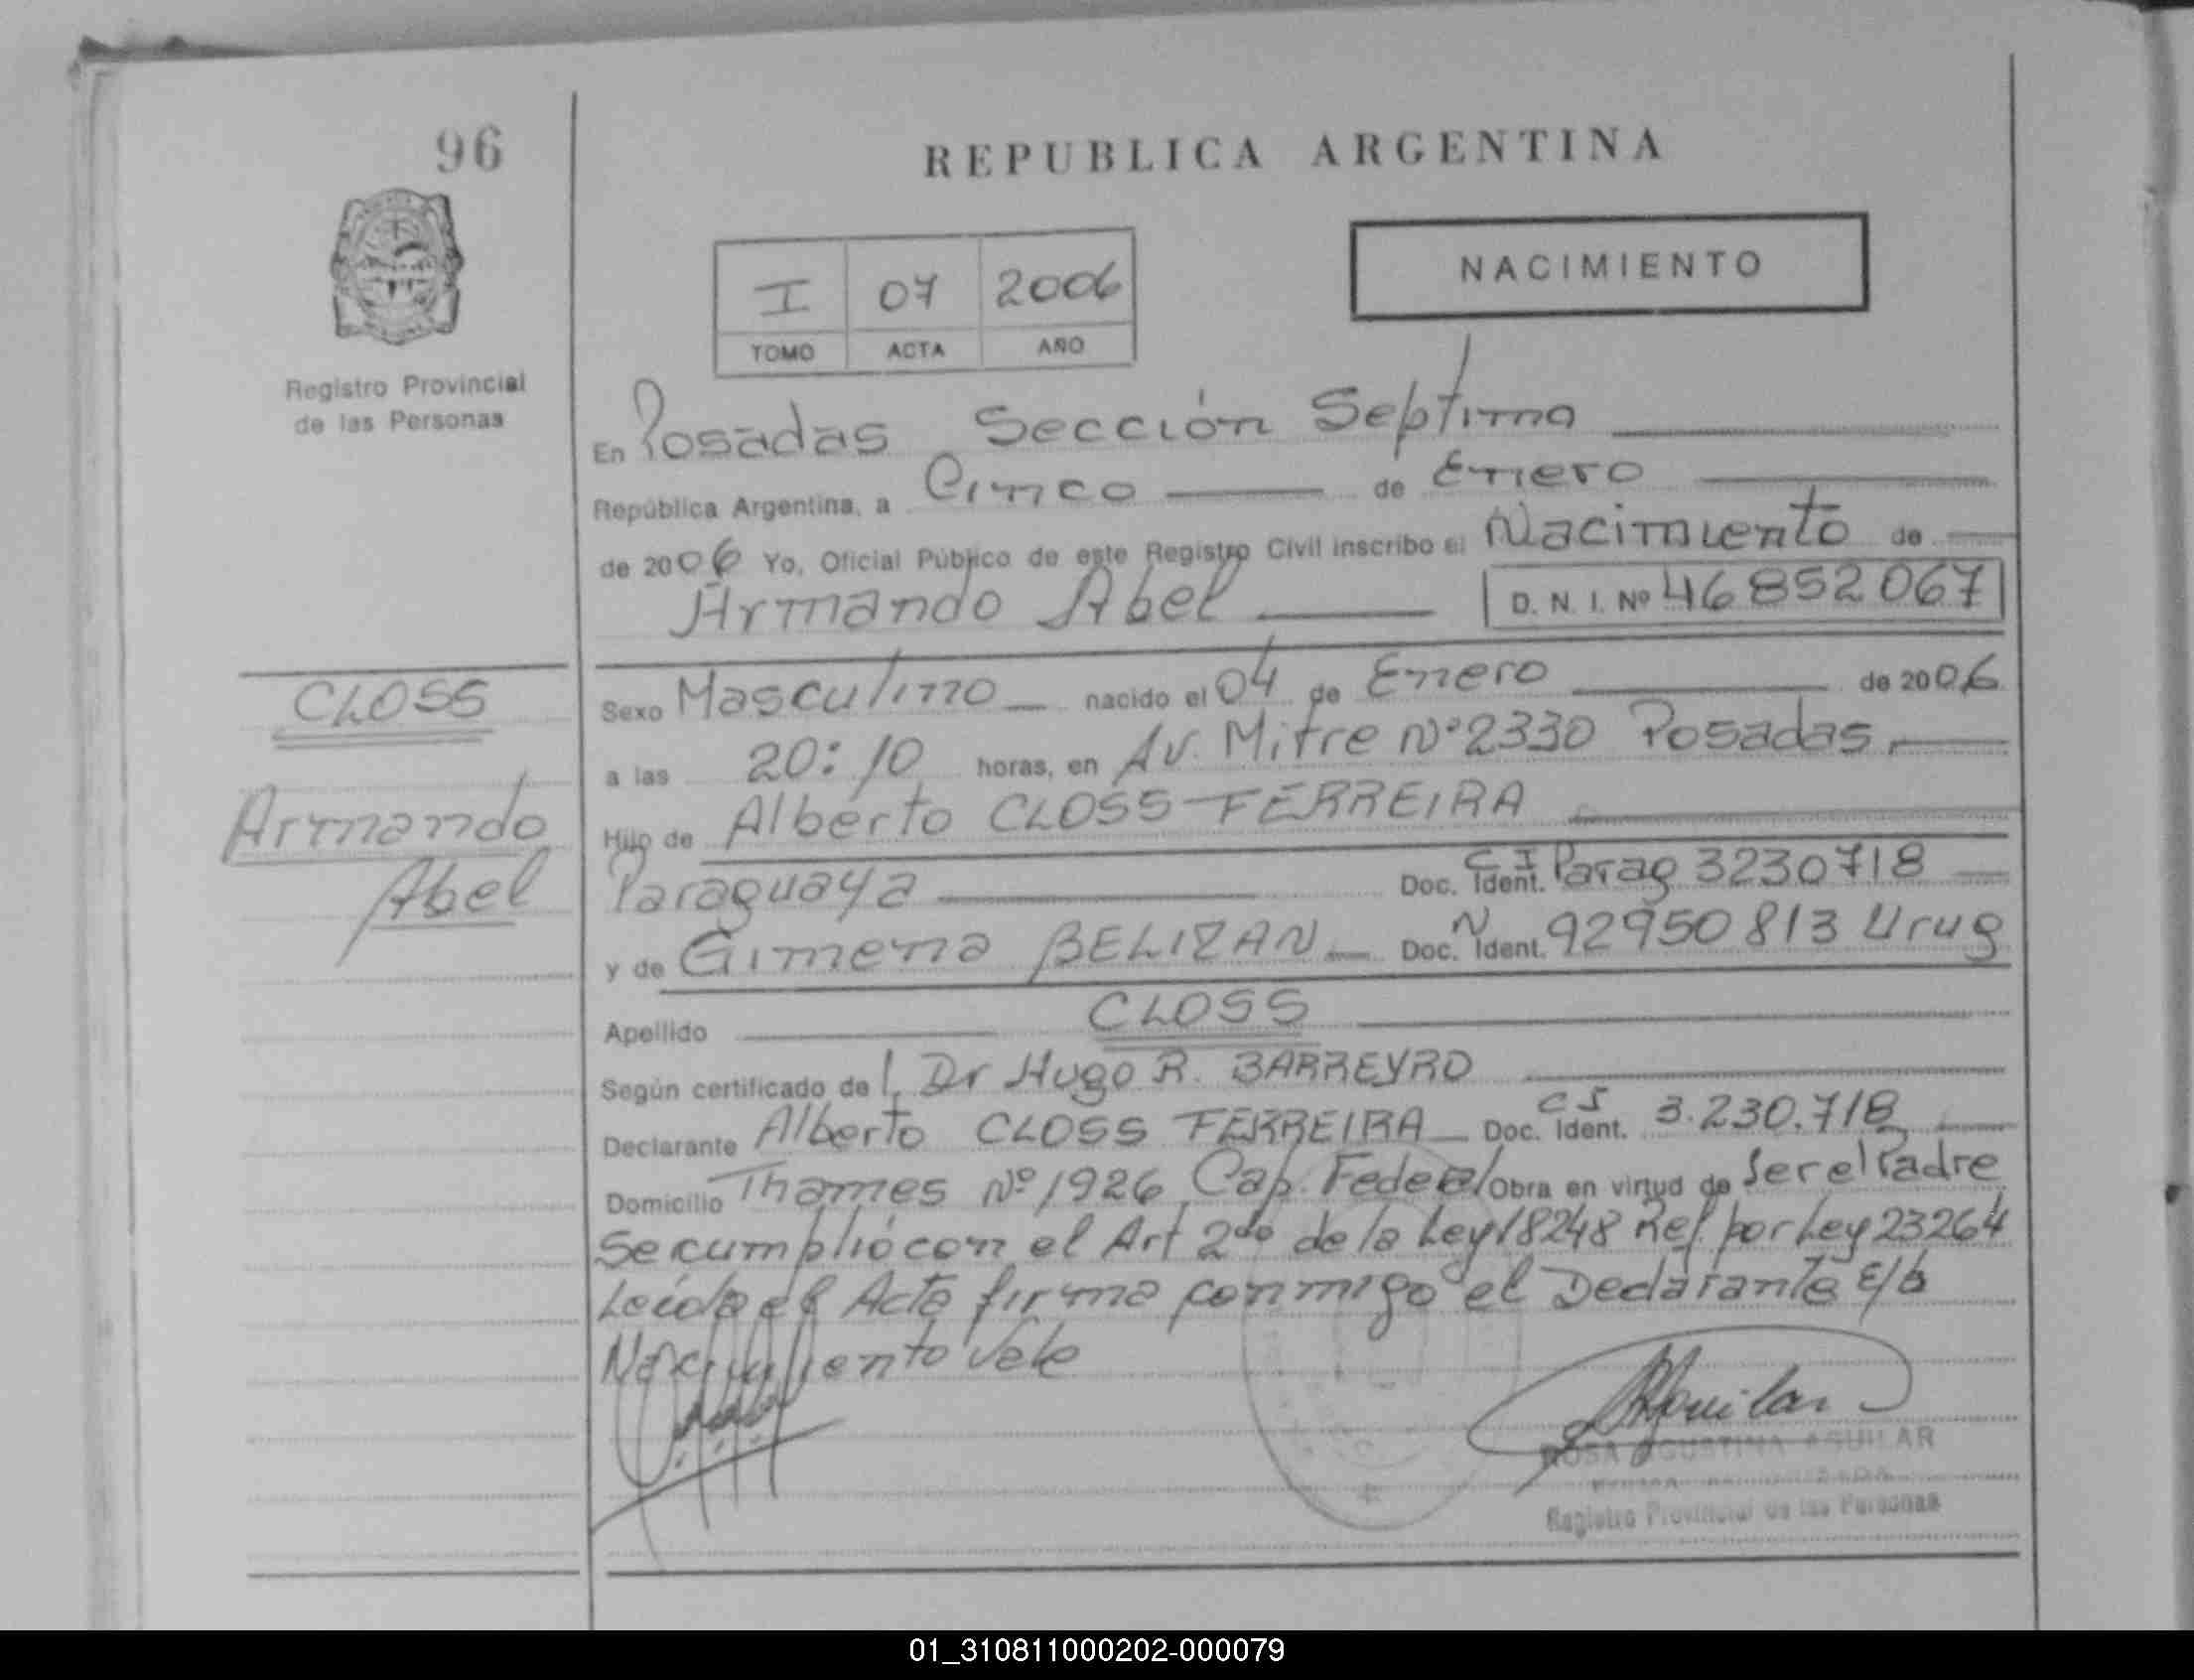 96
REPUBLICA ARGENTINA
NACIMIENTO
I 07 2006
TOMO ACTA AÑO
Registro Provincial
de las Personas
En Posadas Sección Septima
República Argentina, a Cinco de Enero
de 2006 Yo, Oficial Público de este Registro Civil inscribo el Nacimiento de
Armando Abel D. N. I. Nº 46852067
CLOSS
Armando
Abel
Sexo Masculino nacido el 04 de Enero de 2006
a las 20:10 horas, en Av. Mitre Nº 2330 Posadas.
Hijo de Alberto CLOSS FERREIRA
Paraguaya Doc. Ident. CI Parag 3230718
y de Gimena BELIZAN Doc. N Ident. 92950813 Urug
Apellido CLOSS
Según certificado del Dr Hugo R. BARREYRO
Declarante Alberto CLOSS FERREIRA Doc. Ident. CI 3.230.718
Domicilio Thames Nº 1926 Cap. Federal Obra en virtud de Ser el Padre
Se cumplió con el Art 2do de la Ley 18248 Ref por Ley 23264
Leída el Acta firma conmigo el Declarante E/b
Nacimiento Vale
RAguilar
ROSA AGUSTINA AGUILAR
Registro Provincial de las Personas
01_310811000202-000079